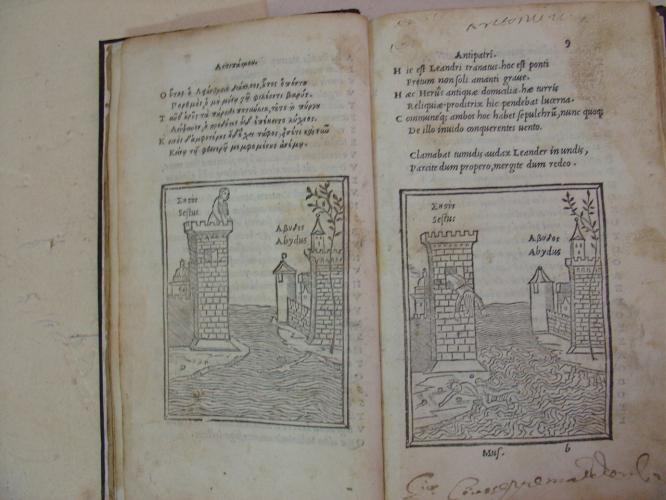 Αντιπάτρου.
Οὗτος ὁ Λειάνδροιο διάπλοος, οὗτος ὁ πόντου
Πορθμὸς, ὁ μὴ μούνῳ τῷ φιλέοντι βαρύς.
Τ αῦθ' ἡροῦς τὰ πάροιθεν ἐπαύλια, τοῦτο τὸ πύργου
Λείψανον, ὁ προδότης ὧδ' ἐπέκειτο λύχνος.
Κ οινὸς δ' ἀμφοτέρους ὅδ' ἔχει τάφος, εἰσέτι καὶ νῦν
Κείνῳ τῷ φθονερῷ μεμφομένους ἀνέμῳ.
Σηστὸς
Sestus
Αβυδος
Abydus
9
Antipatri.
H ic est Leandri tranatus. hoc est ponti
Fretum non soli amanti graue.
H æc Herus antiquæ domicilia. hæ turris
Reliquiæ. proditrix hic pendebat lucerna.
C ommunisq; ambos hoc habet sepulchrū, nunc quoq;
De illo inuido conquerentes uento.
Clamabat tumidis audax Leander in undis,
Parcite dum propero, mergite dum redeo.
Σηστὸς
Sestus
Αβυδος
Abydus
Mus. b